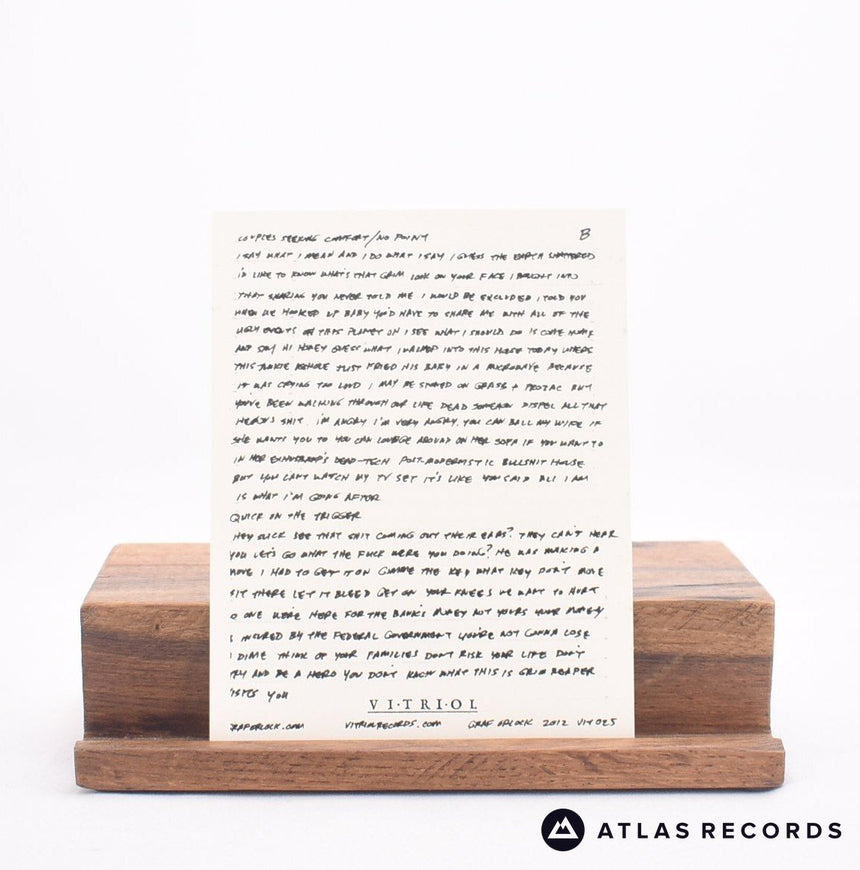 COUPLES SEEKING COMFORT/NO POINT B
I SAY WHAT I MEAN AND I DO WHAT I SAY I GUESS THE EARTH SHATTERED
I'D LIKE TO KNOW WHAT'S THAT GRIM LOOK ON YOUR FACE I BOUGHT INTO
THAT SHARING YOU NEVER TOLD ME I WOULD BE EXCLUDED I TOLD YOU
WHEN WE HOOKED UP BABY YOU'D HAVE TO SHARE ME WITH ALL OF THE
UGLY EVENTS OF THIS PLANET ON I SEE WHAT I SHOULD DO IS COME HOME
AND SAY HI HONEY GUESS WHAT I WALKED INTO THIS HOUSE TODAY WHERE
THIS JUNKIE ASSHOLE JUST FRIED HIS BABY IN A MICROWAVE BECAUSE
IT WAS CRYING TOO LOUD I MAY BE STONED ON GRASS + PROZAC BUT
YOU'VE BEEN WALKING THROUGH OUR LIFE DEAD SOMEHOW DISPEL ALL THAT
HEINOUS SHIT. I'M ANGRY I'M VERY ANGRY. YOU CAN BALL MY WIFE IF
SHE WANTS YOU TO YOU CAN LOUNGE AROUND ON HER SOFA IF YOU WANT TO
IN HER EXHUSBAND'S DEAD-TECH POST-MODERNISTIC BULLSHIT HOUSE
BUT YOU CAN'T WATCH MY TV SET IT'S LIKE YOU SAID ALL I AM
IS WHAT I'M GOING AFTER
QUICK ON THE TRIGGER
HEY SLICK SEE THAT SHIT COMING OUT THEIR EARS? THEY CAN'T HEAR
YOU LET'S GO WHAT THE FUCK WERE YOU DOING? HE WAS MAKING A
MOVE I HAD TO GET IT ON GIMME THE KEY WHAT KEY DON'T MOVE
SIT THERE LET IT BLEED GET ON YOUR KNEES WE WANT TO HURT
O ONE WERE HERE FOR THE BANK'S MONEY NOT YOURS YOUR MONEY
S INSURED BY THE FEDERAL GOVERNMENT YOU'RE NOT GONNA LOSE
I DIME THINK OF YOUR FAMILIES DON'T RISK YOUR LIFE DON'T
TRY AND BE A HERO YOU DON'T KNOW WHAT THIS IS GRIM REAPER
ISITS YOU
VI·TRI·OL
GRAFORLOCK.COM VITRIOLRECORDS.COM GRAF ORLOCK 2012 VIT025
ATLAS RECORDS